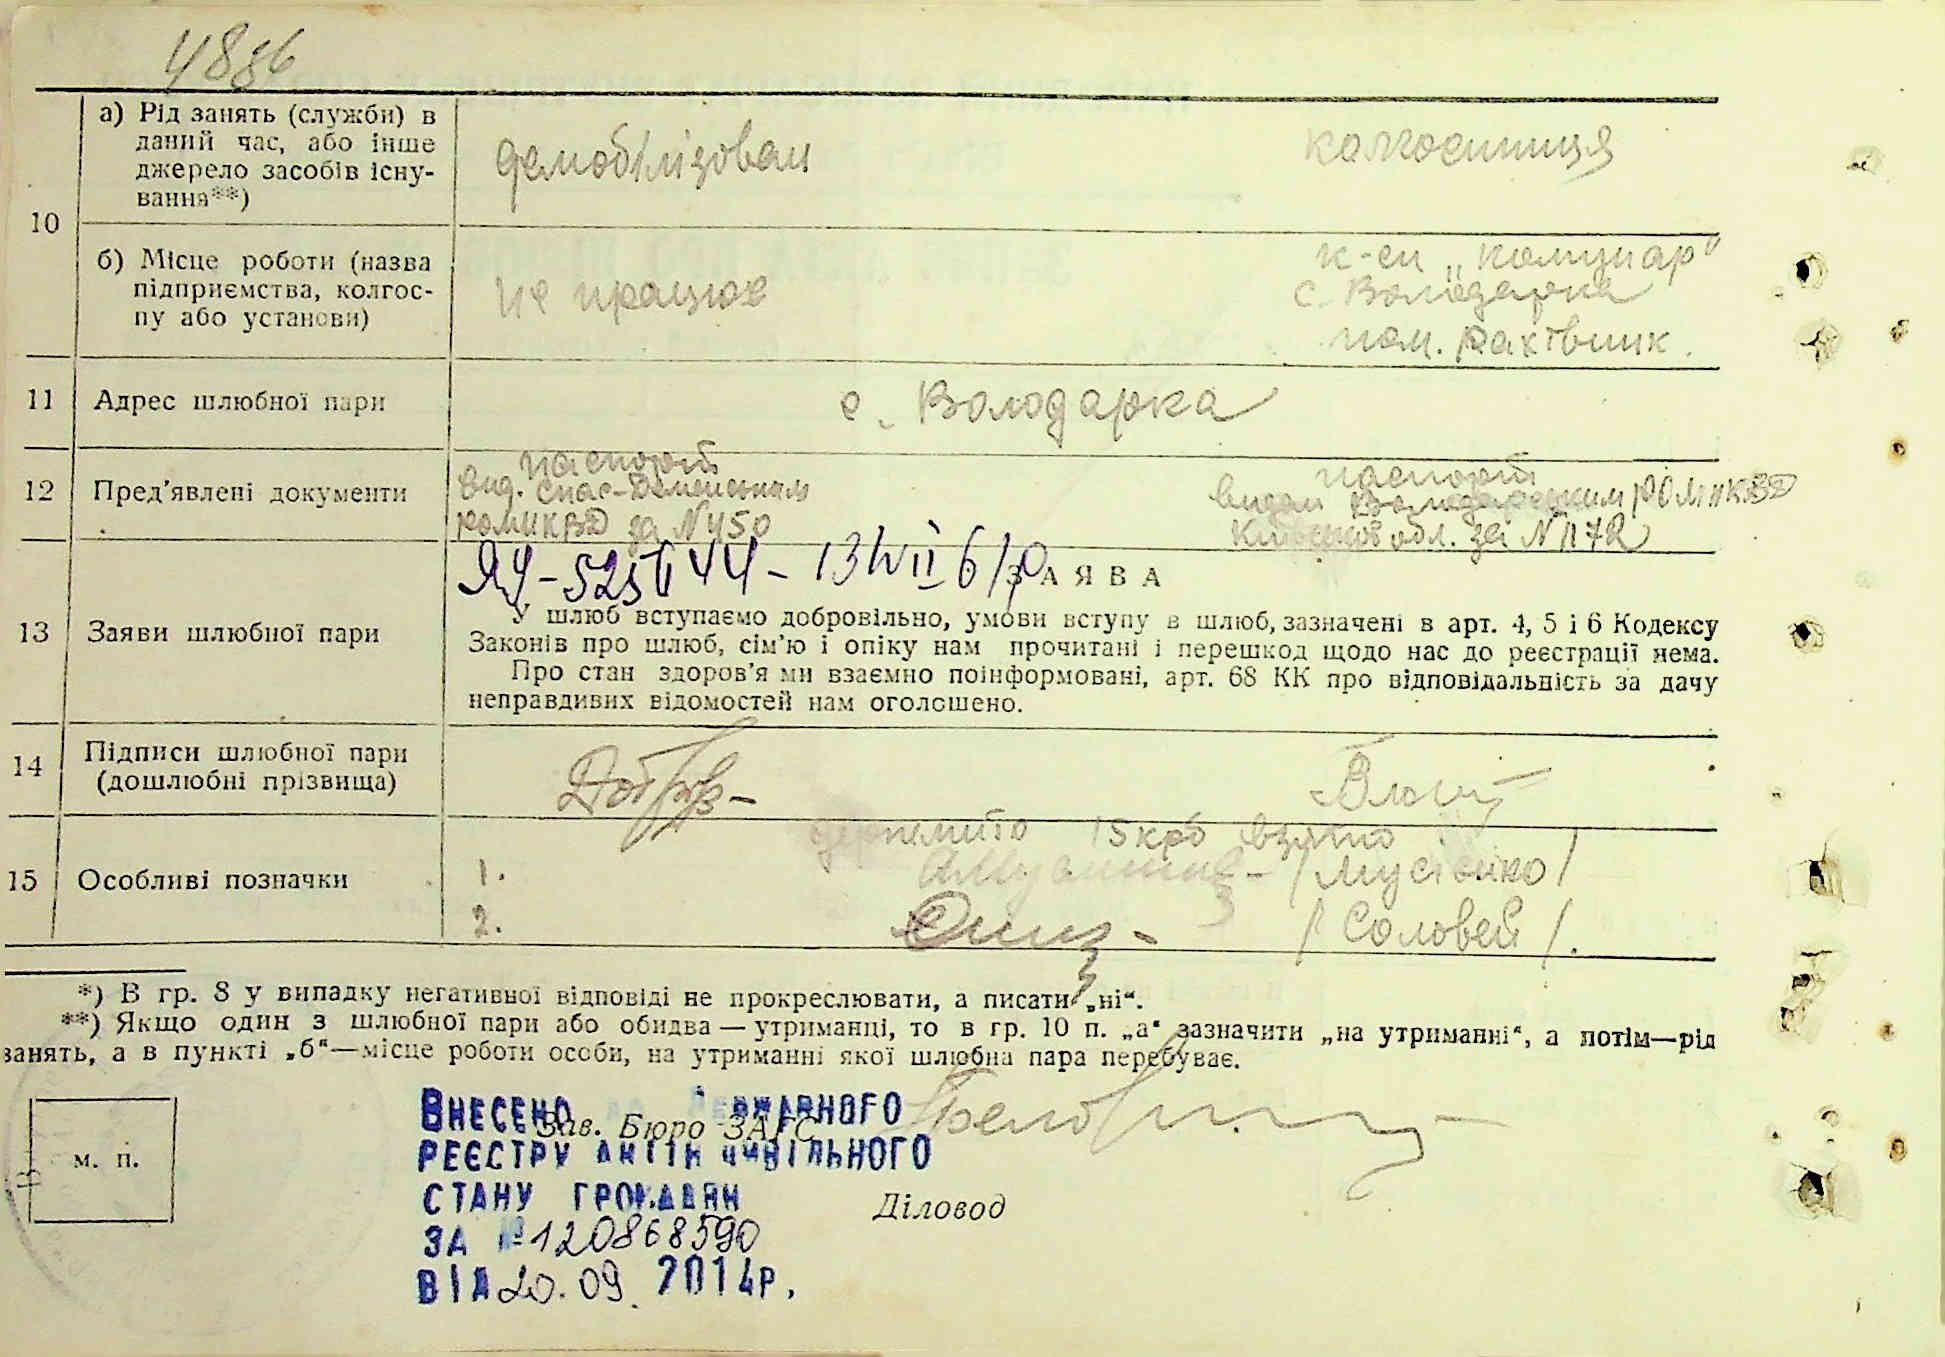 а) Рід занять (служби) в
даний час, або інше
джерело засобів існу-
вання**)
демобілізован
колгоспниця
10
б) Місце роботи (назва
підприємства, колгос-
пу або установи)
не працює
к-сп „Комунар"
с. Володарка
пом. рахівник.
11 Адрес шлюбної пари
с. Володарка
12 Пред'явлені документи
паспорт
вид. Спас-Деменським
РОМНКВД за N 450
паспорт
видан Володарським РОМНКВД
Київської обл. за N 1172
13 Заяви шлюбної пари
ЗАЯВА
У шлюб вступаємо добровільно, умови вступу в шлюб, зазначені в арт. 4, 5 і 6 Кодексу
Законів про шлюб, сім'ю і опіку нам прочитані і перешкод щодо нас до реєстрації нема.
Про стан здоров'я ми взаємно поінформовані, арт. 68 КК про відповідальність за дачу
неправдивих відомостей нам оголошено.
14 Підписи шлюбної пари
(дошлюбні прізвища)
15 Особливі позначки
15 крб взято
1. /Мусієнко/
2. /Соловей/.
*) В гр. 8 у випадку негативної відповіді не прокреслювати, а писати „ні".
**) Якщо один з шлюбної пари або обидва — утриманці, то в гр. 10 п. „а" зазначити „на утриманні", а потім—рід
занять, а в пункті „б"—місце роботи особи, на утриманні якої шлюбна пара перебуває.
м. п.
Зав. Бюро ЗАГС
Діловод
ВНЕСЕНО ДО ДЕРЖАВНОГО
РЕЄСТРУ АКТІВ ЦИВІЛЬНОГО
СТАНУ ГРОМАДЯН
ЗА № 120868590
ВІД 20.09.2014р.